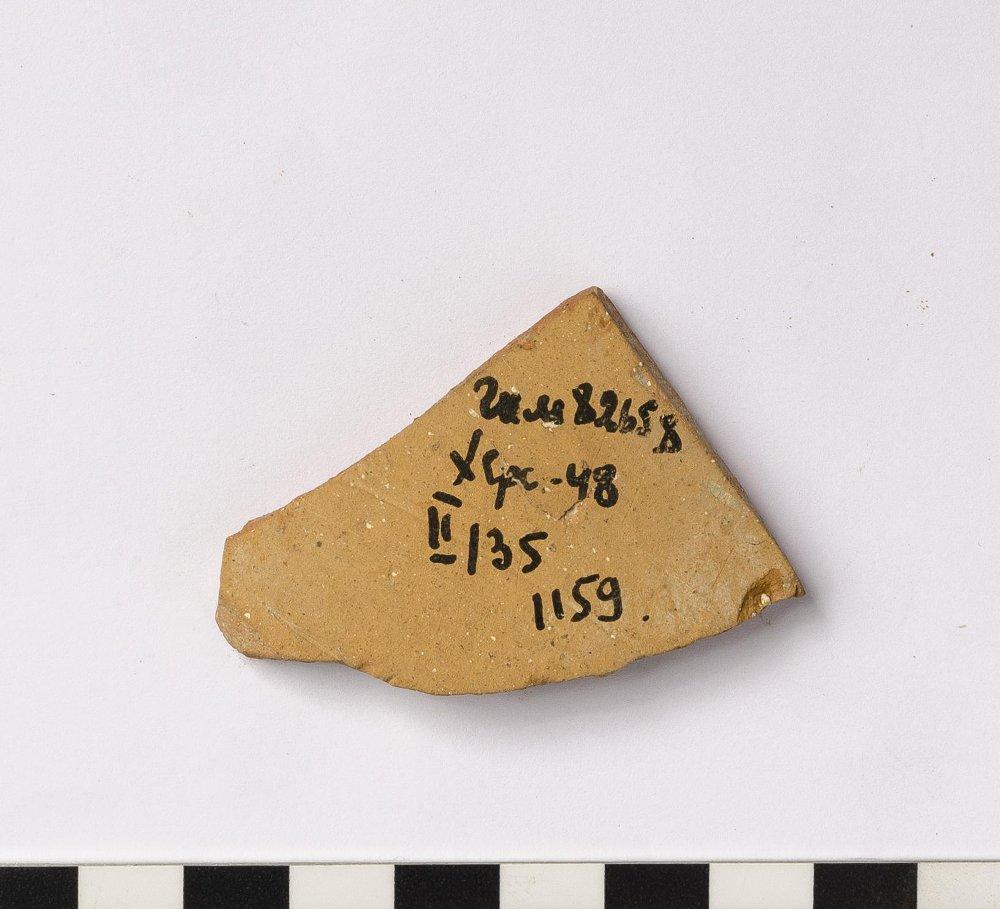 гим 82658
Херс-48
II/35
1159.